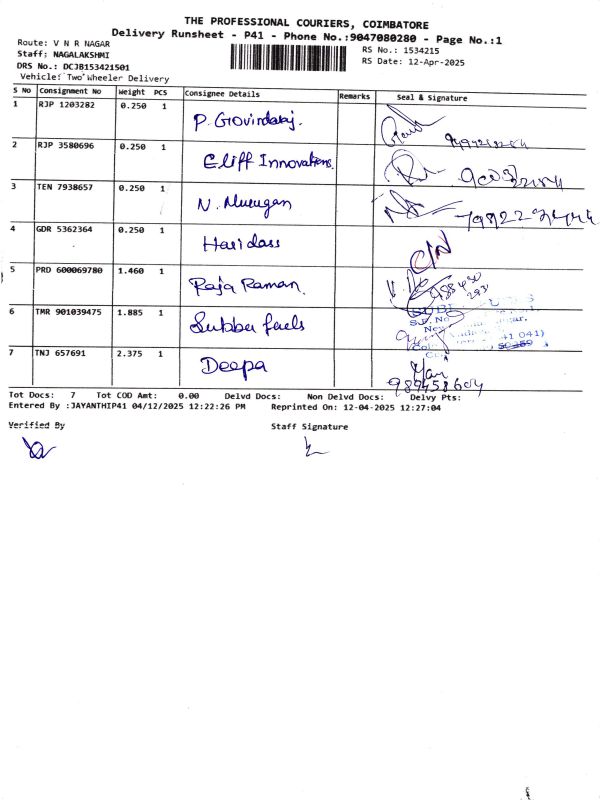 THE PROFESSIONAL COURIERS, COIMBATORE
Delivery Runsheet - P41 - Phone No.:9047080280 - Page No.:1
Route: V N R NAGAR
RS No.: 1534215
Staff: NAGALAKSHMI
RS Date: 12-Apr-2025
DRS No.: DCJB153421501
Vehicle: Two Wheeler Delivery
S No Consignment No Weight PCS Consignee Details Remarks Seal & Signature
1 RJP 1203282 0.250 1 P. Govindaraj.
2 RJP 3580696 0.250 1 Cliff Innovations.
3 TEN 7938657 0.250 1 N. Murugan
4 GDR 5362364 0.250 1 Haridass C/N
5 PRD 600069780 1.460 1 Raja Raman.
6 TMR 901039475 1.885 1 Subba fuels
7 TNJ 657691 2.375 1 Deepa
Tot Docs: 7 Tot COD Amt: 0.00 Delvd Docs: Non Delvd Docs: Delvy Pts:
Entered By :JAYANTHIP41 04/12/2025 12:22:26 PM Reprinted On: 12-04-2025 12:27:04
Verified By Staff Signature